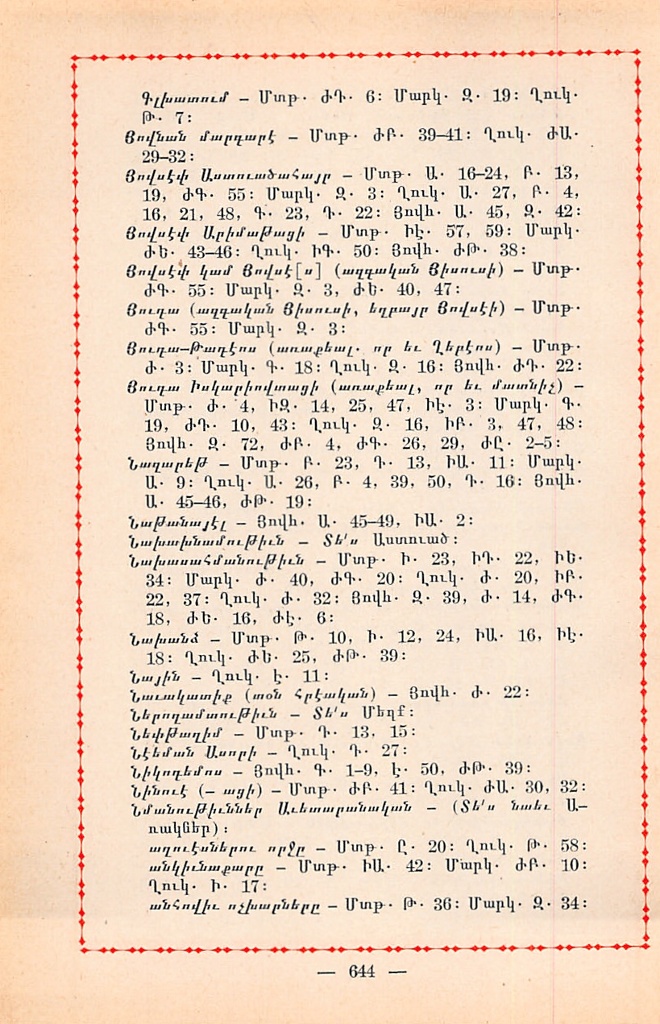 Գլխատում – Մտթ. ԺԴ. 6: Մարկ. Զ. 19: Ղուկ.
Թ. 7:
Յովնան մարգարէ – Մտթ. ԺԲ. 39–41: Ղուկ. ԺԱ.
29–32:
Յովսէփ Աստուածահայր – Մտթ. Ա. 16–24, Բ. 13,
19, ԺԳ. 55: Մարկ. Զ. 3: Ղուկ. Ա. 27, Բ. 4,
16, 21, 48, Գ. 23, Դ. 22: Յովհ. Ա. 45, Զ. 42:
Յովսէփ Արիմաթացի – Մտթ. ԻԷ. 57, 59: Մարկ.
ԺԵ. 43–46: Ղուկ. ԻԳ. 50: Յովհ. ԺԹ. 38:
Յովսէփ կամ Յովսէ[ս] (ազգական Յիսուսի) – Մտթ.
ԺԳ. 55: Մարկ. Զ. 3, ԺԵ. 40, 47:
Յուդա (ազգական Յիսուսի, եղբայր Յովսէի) – Մտթ.
ԺԳ. 55: Մարկ. Զ. 3:
Յուդա–Թադէոս (առաքեալ. որ եւ Ղեբէոս) – Մտթ.
Ժ. 3: Մարկ. Գ. 18: Ղուկ. Զ. 16: Յովհ. ԺԴ. 22:
Յուդա Իսկարիովտացի (առաքեալ, որ եւ մատնիչ) –
Մտթ. Ժ. 4, ԻԶ. 14, 25, 47, ԻԷ. 3: Մարկ. Գ.
19, ԺԴ. 10, 43: Ղուկ. Զ. 16, ԻԲ. 3, 47, 48:
Յովհ. Զ. 72, ԺԲ. 4, ԺԳ. 26, 29, ԺԸ. 2–5:
Նազարեթ – Մտթ. Բ. 23, Դ. 13, ԻԱ. 11: Մարկ.
Ա. 9: Ղուկ. Ա. 26, Բ. 4, 39, 50, Դ. 16: Յովհ.
Ա. 45–46, ԺԹ. 19:
Նաթանայէլ – Յովհ. Ա. 45–49, ԻԱ. 2:
Նախախնամութիւն – Տե՛ս Աստուած:
Նախասահմանութիւն – Մտթ. Ի. 23, ԻԴ. 22, ԻԵ.
34: Մարկ. Ժ. 40, ԺԳ. 20: Ղուկ. Ժ. 20, ԻԲ.
22, 37: Ղուկ. Ժ. 32: Յովհ. Զ. 39, Ժ. 14, ԺԳ.
18, ԺԵ. 16, ԺԷ. 6:
Նախանձ – Մտթ. Թ. 10, Ի. 12, 24, ԻԱ. 16, ԻԷ.
18: Ղուկ. ԺԵ. 25, ԺԹ. 39:
Նային – Ղուկ. Է. 11:
Նաւակատիք (տօն Հրէական) – Յովհ. Ժ. 22:
Ներողամտութիւն – Տե՛ս Մեղք:
Նեփթաղիմ – Մտթ. Դ. 13, 15:
Նէեման Ասորի – Ղուկ. Դ. 27:
Նիկոդեմոս – Յովհ. Գ. 1–9, Է. 50, ԺԹ. 39:
Նինուէ (– ացի) – Մտթ. ԺԲ. 41: Ղուկ. ԺԱ. 30, 32:
Նմանութիւններ Աւետարանական – (Տե՛ս նաեւ Ա–
ռակներ):
աղուէսներու որջը – Մտթ. Ը. 20: Ղուկ. Թ. 58:
անկիւնաքարը – Մտթ. ԻԱ. 42: Մարկ. ԺԲ. 10:
Ղուկ. Ի. 17:
անհովիւ ոչխարները – Մտթ. Թ. 36: Մարկ. Զ. 34:
— 644 —